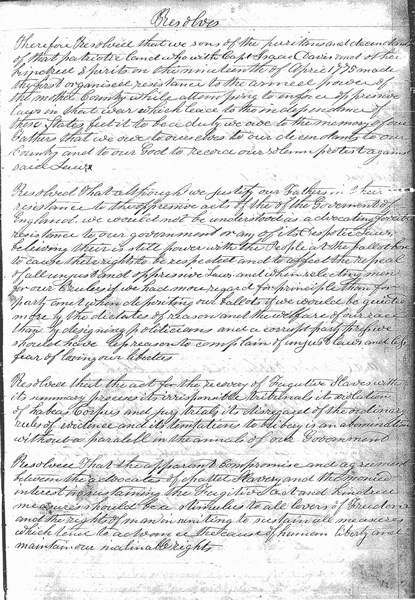 Resolves
Therefore Resolved that we sons of the puritans and decendants
of that patriotic band who with Capt Isaac Davis and other
kindred Spirits on the nineteenth of April 1775 made
the first organised resistance to the armed power of
the mother Country while attempting to enforce oppresive
laws in that war which lead to the independence of
these States feel it to be a duty we owe to the memory of our
Fathers that we owe to ourselves to our decendants to our
Country and to our God to record our solemn protest against
said Law
Resolved That although we justify our Fathers in their
resistance to the oppressive acts of the of the Goverment of
England we would not be understood as advocating forcible
resistance to our government or any of its Laws
believing there is still power with the People at the ballot box
to cause there rights to be respected and to effect the repeal
of all unjust and oppressive Law and when selecting men
for our Rulers if we had more regard for principle than for
party and when depositing our ballots if we would be guided
more by the dictates of reason and the welfare of our race
than by designing politicians and a corrupt party we
should have less reason to complain of unjust laws and less
fear of loving our liberties
Resolved that the act for the recovery of Fugitive Slaves with
its summary process its irresponsible tribunals its violation
of habeas Corpus and jury trial its disregard of the ordinary
rules of evidence and its temptations to bribery is an abomination
without a parallell in the annals of our Government
Resolved That the apparent Compromise and agreement
between the advocates of chattel Slavery and the monied
interest in sustaining the Fugitive Act and kindred
measures should be a stimulus to all lovers of Freedom
and the rights of man in uniting to sustain all measures
which tend to advance the cause of human liberty and
maintain our inalinable rights